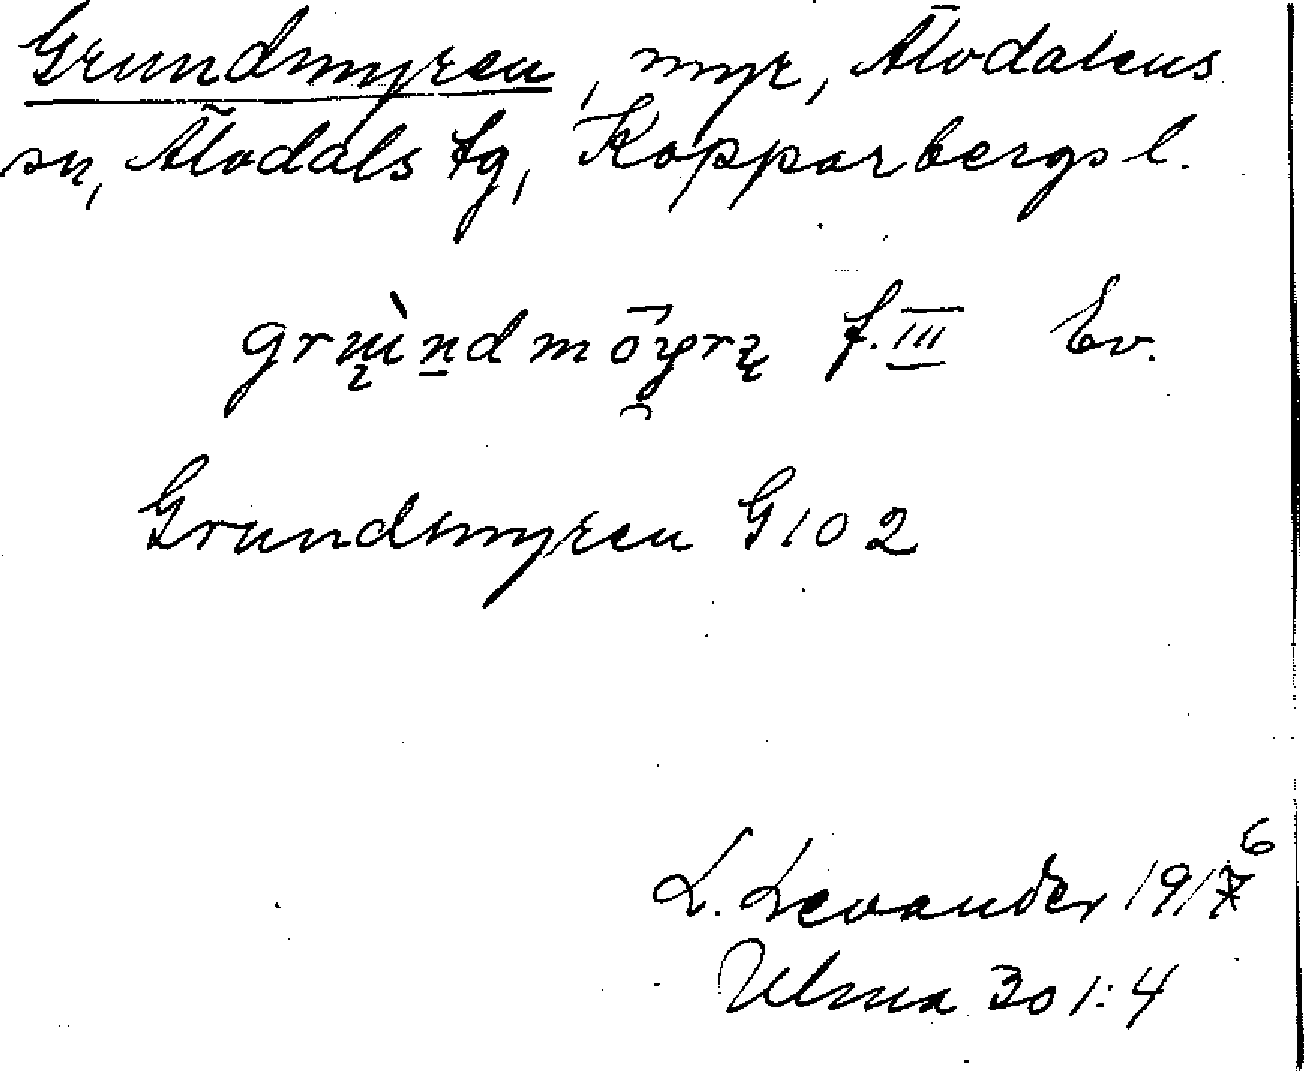 Grundmyren, myr, Älvdalens
sn, Älvdals tg, Kopparbergs l.
f. III Ev.
Grundmyren G102
L. Levander 1916
Ulma 301:4